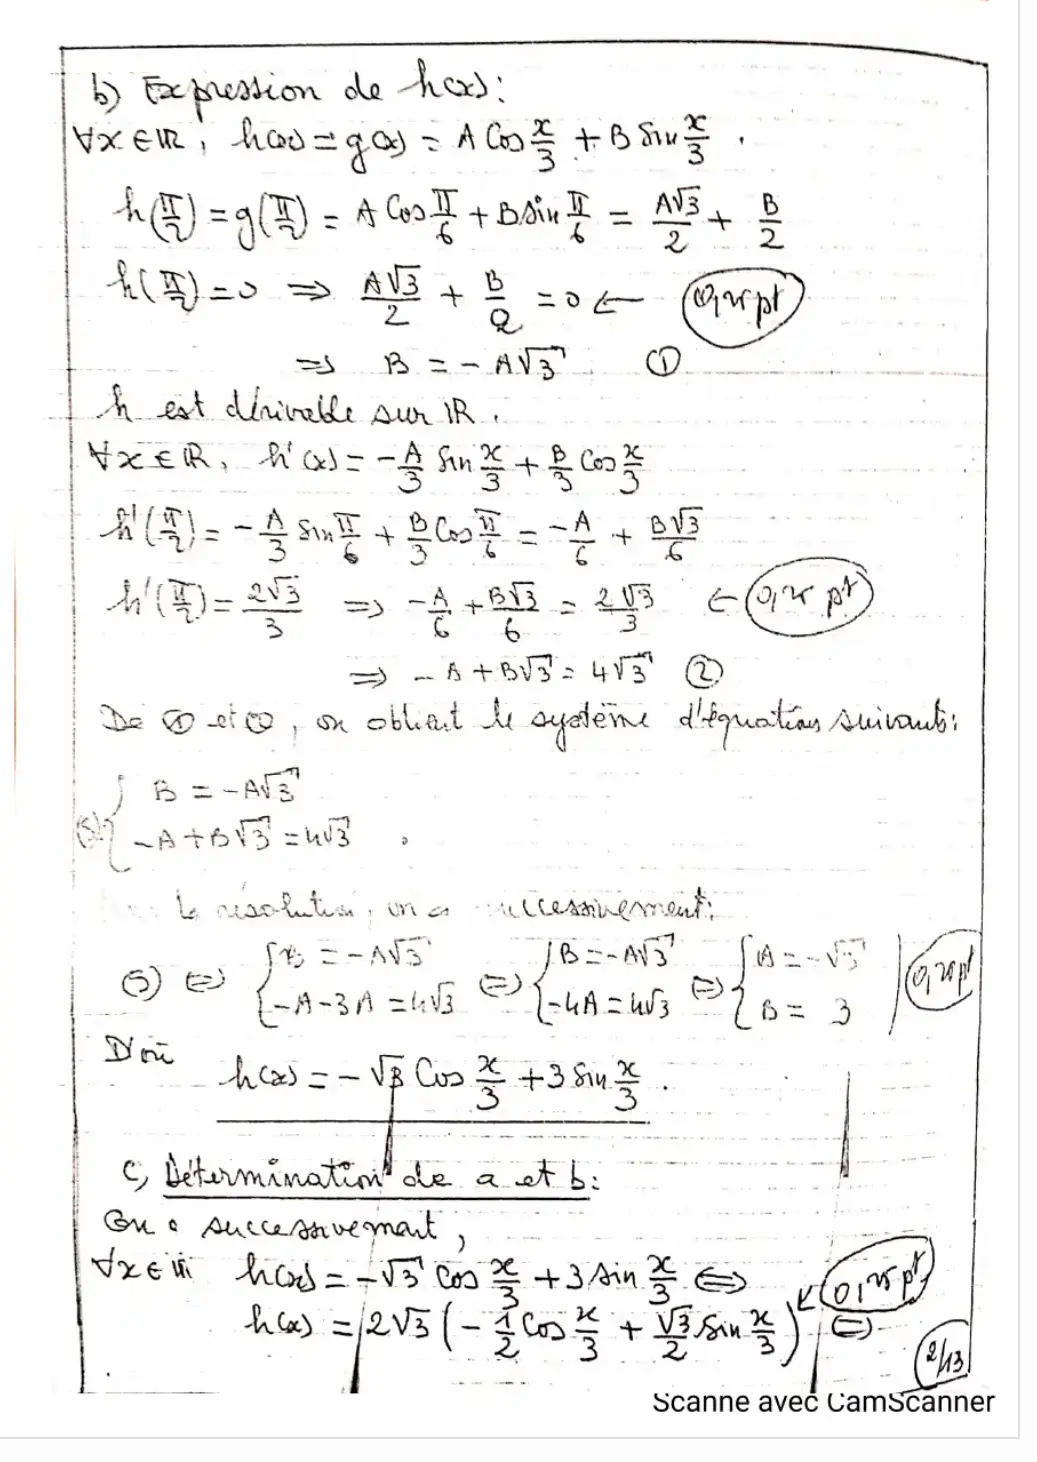 b) Expression de h(x):
∀x∈ℝ, h(x) = g(x) = A Cos x/3 + B Sin x/3.
h(π/2) = g(π/2) = A Cos π/6 + B sin π/6 = A√3/2 + B/2
h(π/2) = 0 ⇒ A√3/2 + B/2 = 0 ← 0,25 pt
⇒ B = -A√3 ①
h est dérivable sur ℝ.
∀x∈ℝ, h'(x) = -A/3 Sin x/3 + B/3 Cos x/3
h'(π/2) = -A/3 Sin π/6 + B/3 Cos π/6 = -A/6 + B√3/6
h'(π/2) = 2√3/3 ⇒ -A/6 + B√3/6 = 2√3/3 ← 0,25 pt
⇒ -A + B√3 = 4√3 ②
De ① et ②, on obtient le système d'équations suivants:
(S) { B = -A√3
-A + B√3 = 4√3.
la résolution, on a successivement:
(S) ⇔ { B = -A√3 ⇔ { B = -A√3 ⇔ { A = -√3
-A-3A = 4√3 -4A = 4√3 B = 3 0,25 pt
D'où
h(x) = -√3 Cos x/3 + 3 Sin x/3.
c) Détermination de a et b:
On a successivement,
∀x∈ℝ h(x) = -√3 Cos x/3 + 3 sin x/3 ⇔ 0,25 pt
h(x) = 2√3 (-1/2 Cos x/3 + √3/2 Sin x/3) ⇔
2/13
Scanné avec CamScanner